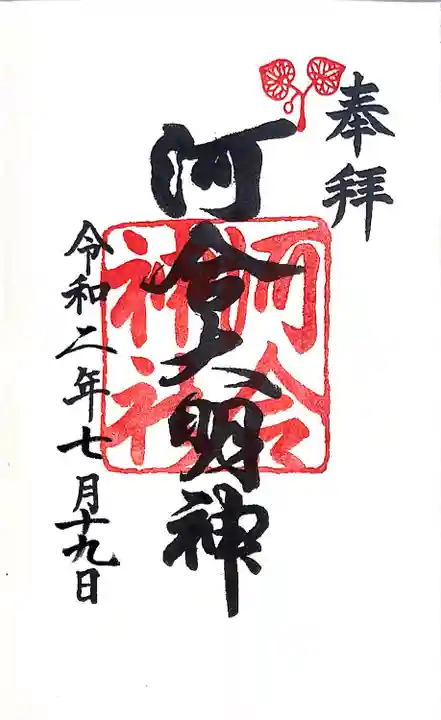 奉拝
河合大明神
河合神社
令和二年七月十九日